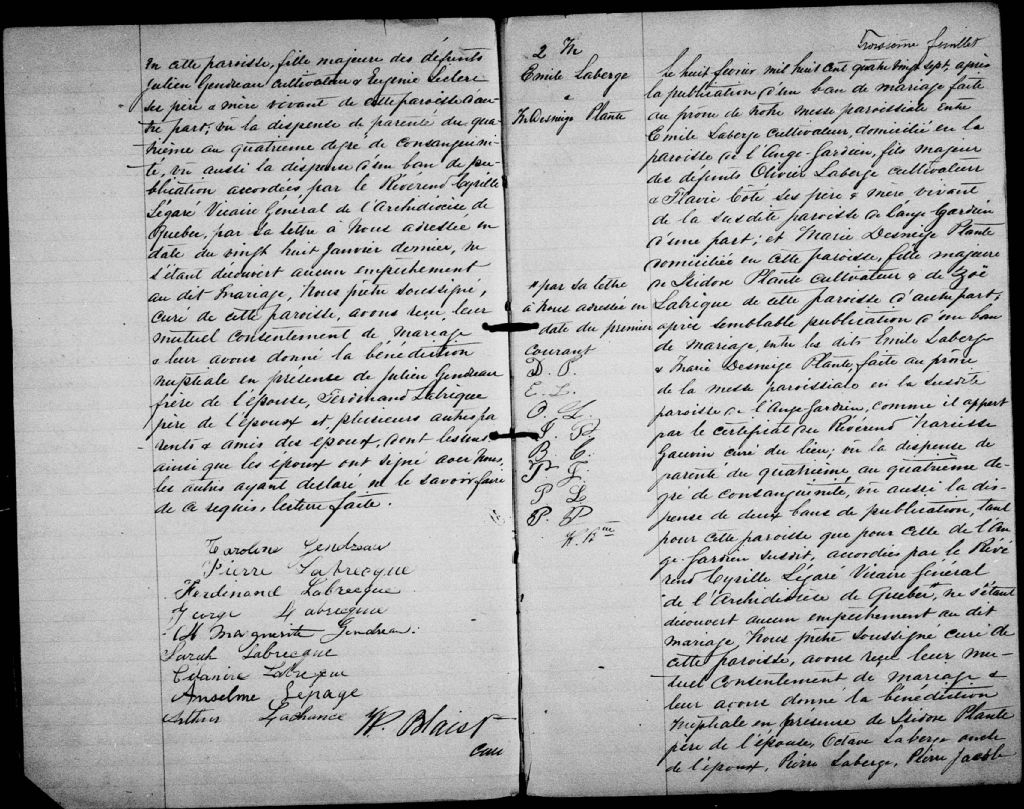 en cette paroisse, fille majeure des défunts
Julien Gendreau cultivateur & Eugénie Leclerc
ses père & mère vivant de cette paroisse d'au-
tre part; vû la dispense de parenté du qua-
trième au quatrième degré de consanguini-
té, vû aussi la dispense d'un ban de pu-
blication accordées par le Révérend Cyrille
Légaré Vicaire Général de l'Archidiocèse de
Québec, par sa lettre à Nous adressée en
date du vingt huit Janvier dernier, ne
s'étant découvert aucun empêchement
au dit mariage, Nous prêtre soussigné,
curé de cette paroisse, avons reçu leur
mutuel consentement de mariage
& leur avons donné la bénédiction
nuptiale en présence de Julien Gendreau
frère de l'épouse, Ferdinand Labrèque
père de l'époux et plusieurs autres pa-
rents & amis des époux, dont les uns
ainsi que les époux ont signé avec Nous,
les autres ayant déclaré ne le savoir faire
de ce requis, lecture faite.
Caroline Gendreau
Pierre Labrecque
Ferdinand Labrecque
George Labrecque
M Marguerite Gendreau
Sarah Labrecque
Labrecque
Anselme Lepage
Arthur Lachance
W. Blais
Curé
2 M
Emile Laberge
&
M Desneige Plante
* par sa lettre
à nous adressée en
date du premier
courant
D. P.
E. L.
O. L.
J. Pt
B. C.
P. J.
P. L
P. P
Troisième feuillet
Le huit février mil huit cent quatre vingt sept, après
la publication d'un ban de mariage faite
au prône de notre messe paroissiale entre
Emile Laberge cultivateur, domicilié en la
paroisse de l'Ange-Gardien, fils majeur
des défunts Olivier Laberge cultivateur
& Flavie Côté ses père & mère vivant
de la susdite paroisse de Lange Gardien
d'une part; et Marie Desneige Plante
domiciliée en cette paroisse, fille majeure
de Isidore Plante cultivateur & de Zoë
Labrèque de cette paroisse d'autre part,
après semblable publication d'un ban
de mariage, entre les dits Emile Laberge
& Marie Desneige Plante, faite au prône
de la messe paroissiale en la susdite
paroisse de l'Ange Gardien, comme il appert
par le certificat du Révérend Narcisse
Gauvin curé du lieu; vû la dispense de
parenté du quatrième au quatrième de-
gré de consanguinité, vû aussi la dis-
pense de deux bans de publication, tant
pour cette paroisse que pour celle de l'An-
ge-Gardien susdit, accordées par le Révé-
rend Cyrille Légaré Vicaire Général
de l'Archidiocèse de Québec*, ne s'étant
découvert aucun empêchement au dit
mariage, Nous prêtre soussigné curé de
cette paroisse, avons reçu leur mu-
tuel consentement de mariage &
leur avons donné la bénédiction
nuptiale en présence de Isidore Plante
père de l'épouse, Octave Laberge oncle
de l'époux, Pierre Laberge, Pierre Jacob